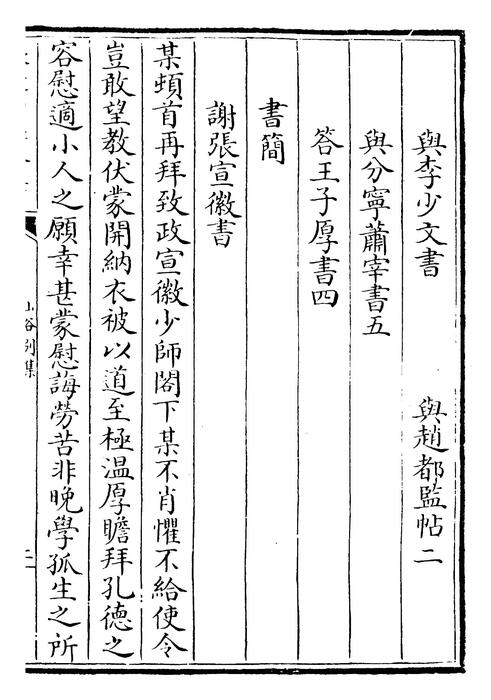 與李少文書　與趙都監帖二
與分寧蕭宰書五
答王子厚書四
書簡
謝張宣徽書
某頓首再拜致政宣徽少師閣下某不肖懼不給使令
豈敢望教伏蒙開納衣被以道至極溫厚瞻拜孔德之
容慰適小人之願幸甚蒙慰誨勞苦非晚學孤生之所
山谷別集